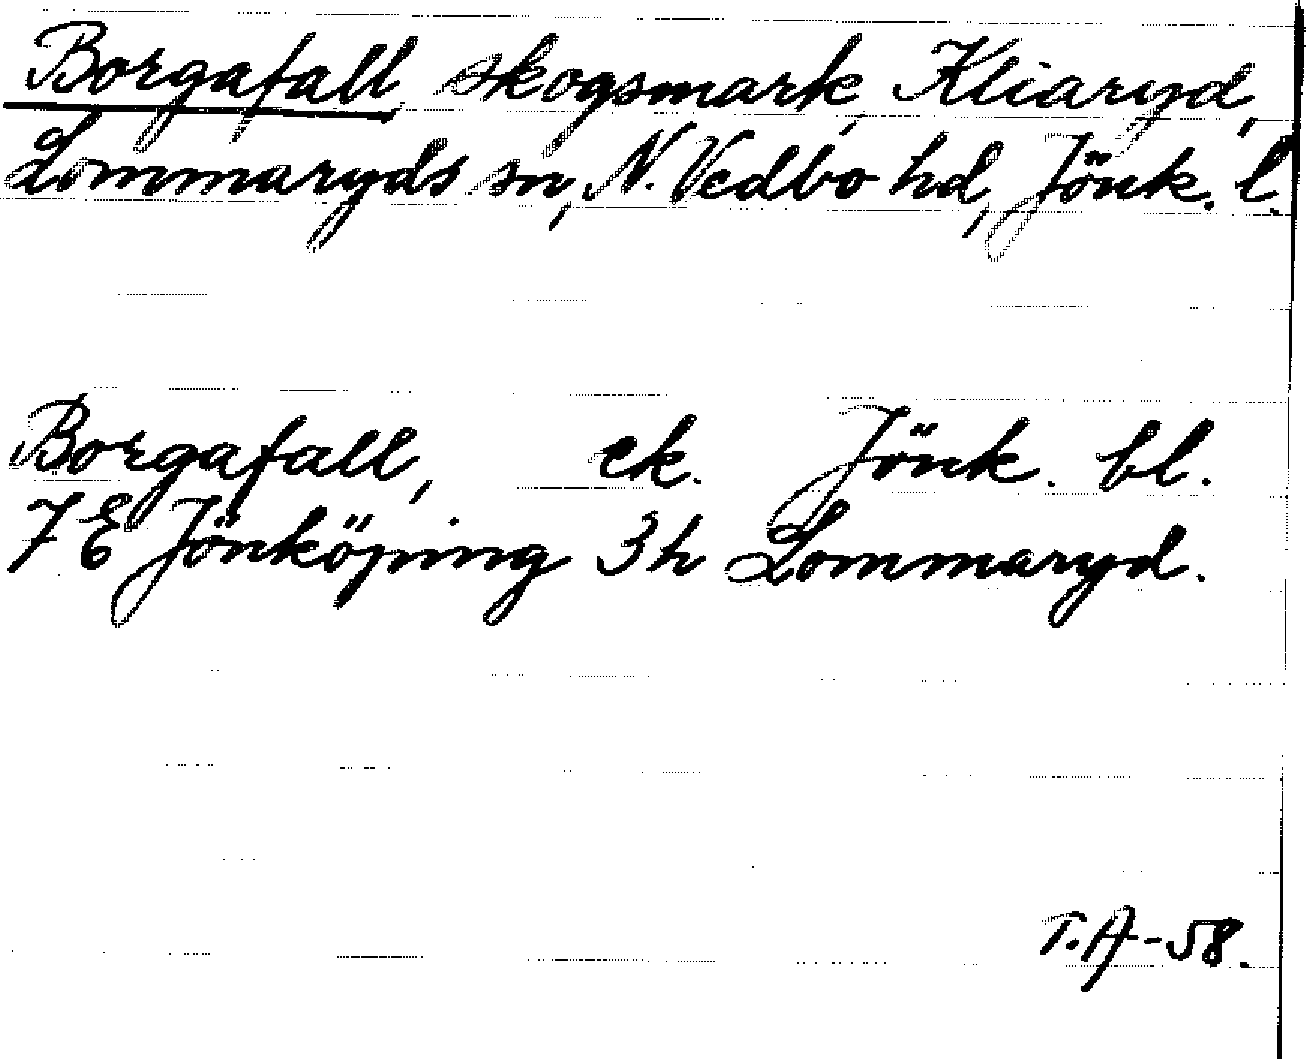 Borgafall skogsmark, Kliaryd,
Lommaryds sn, N. Vedbo hd, Jönk. l.
Borgafall, ek. Jönk. bl.
7 E Jönköping 3h Lommaryd.
T.A-58.